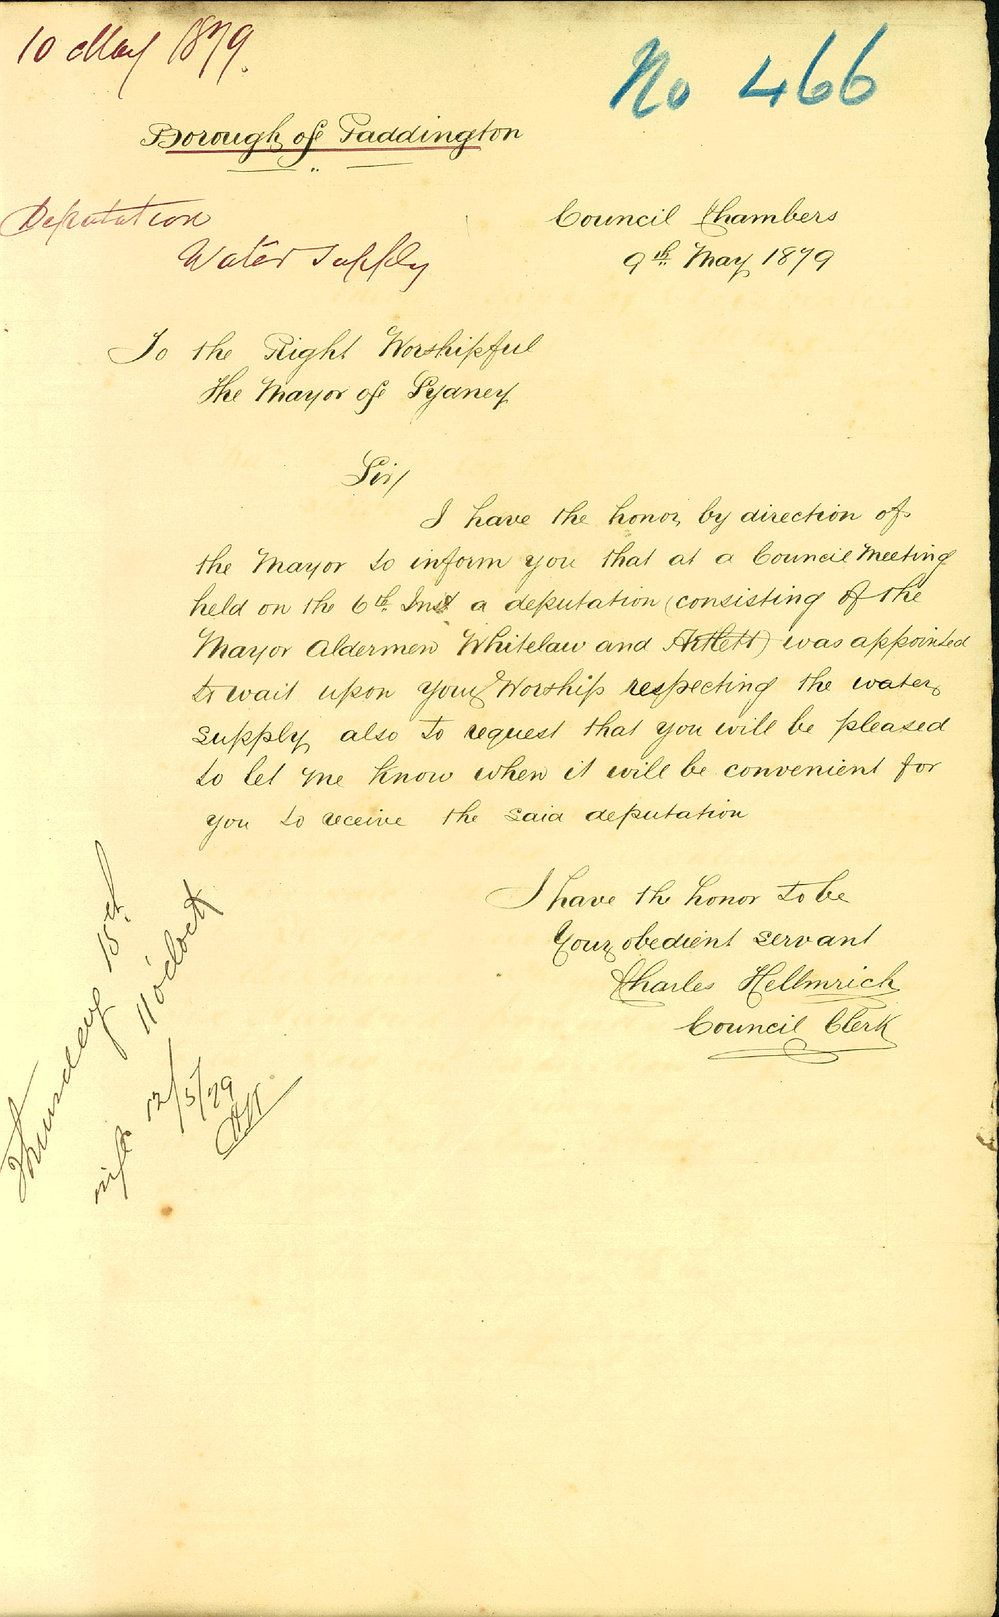 10 May 1879.
No 466
Borough of Paddington
Deputation
Water Supply
Council Chambers
9th. May 1879
To the Right Worshipful
The Mayor of Sydney
Sir/
I have the honor, by direction of
the Mayor to inform you that at a Council Meeting
held on the 6th. Inst a deputation (consisting of the
Mayor Aldermen Whitelaw and Artlett) was appointed
to wait upon your Worship respecting the water
supply also to request that you will be pleased
to let me know when it will be convenient for
you to receive the said deputation
I have the honor to be
Your obedient servant
Charles Hellmrich
Council Clerk
Thursday 15th.
11 o'clock
12/5/79